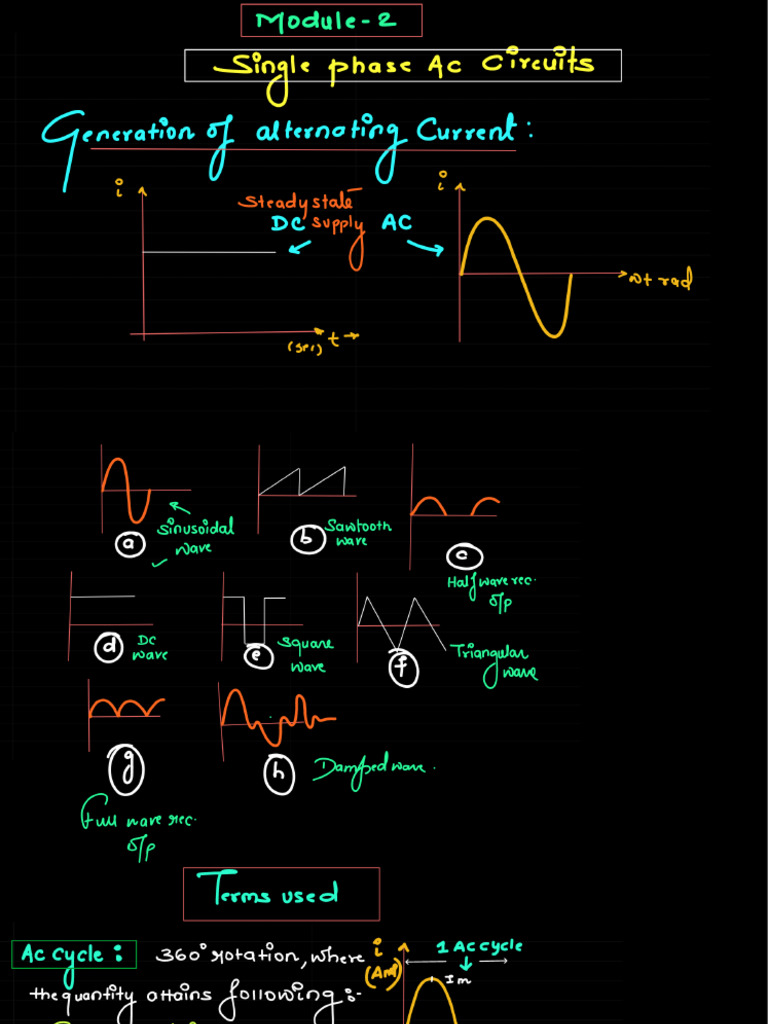 Module-2
Single phase Ac Circuits
Generation of alternating Current:
i
Steady state
DC supply AC
i
wt rad
(sec) t
a
Sinusoidal
wave
b
Sawtooth
wave
c
Half wave rec.
o/p
d
DC
wave
e
Square
wave
f
Triangular
wave
g
Full wave rec.
o/p
h
Damped wave.
Terms used
Ac cycle: 360° rotation, where
the quantity attains following:-
i
(Am)
1 Ac cycle
Im